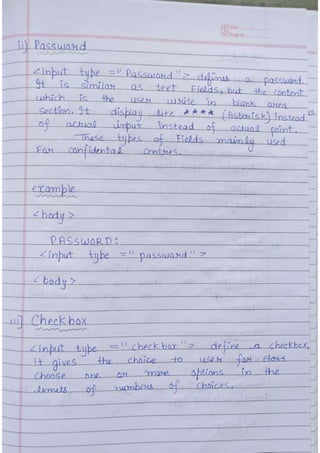 Date
Page No.
ii) Password
<input type =" Password "> defines a password.
It is similar as text Fields, but the content
which is the user write in blank area
section. It display like **** (Asterisk) instead is
of actual input instead of actual point.
These types of Fields mainly used
For confidental centres.
example
<body>
PASSWORD:
<input type =" password ">
<body>
iii) Checkbox
<input type =" check box "> define a checkbox,
it gives the choice to user for class
choose one or more options in the
limits of numbers of choices.